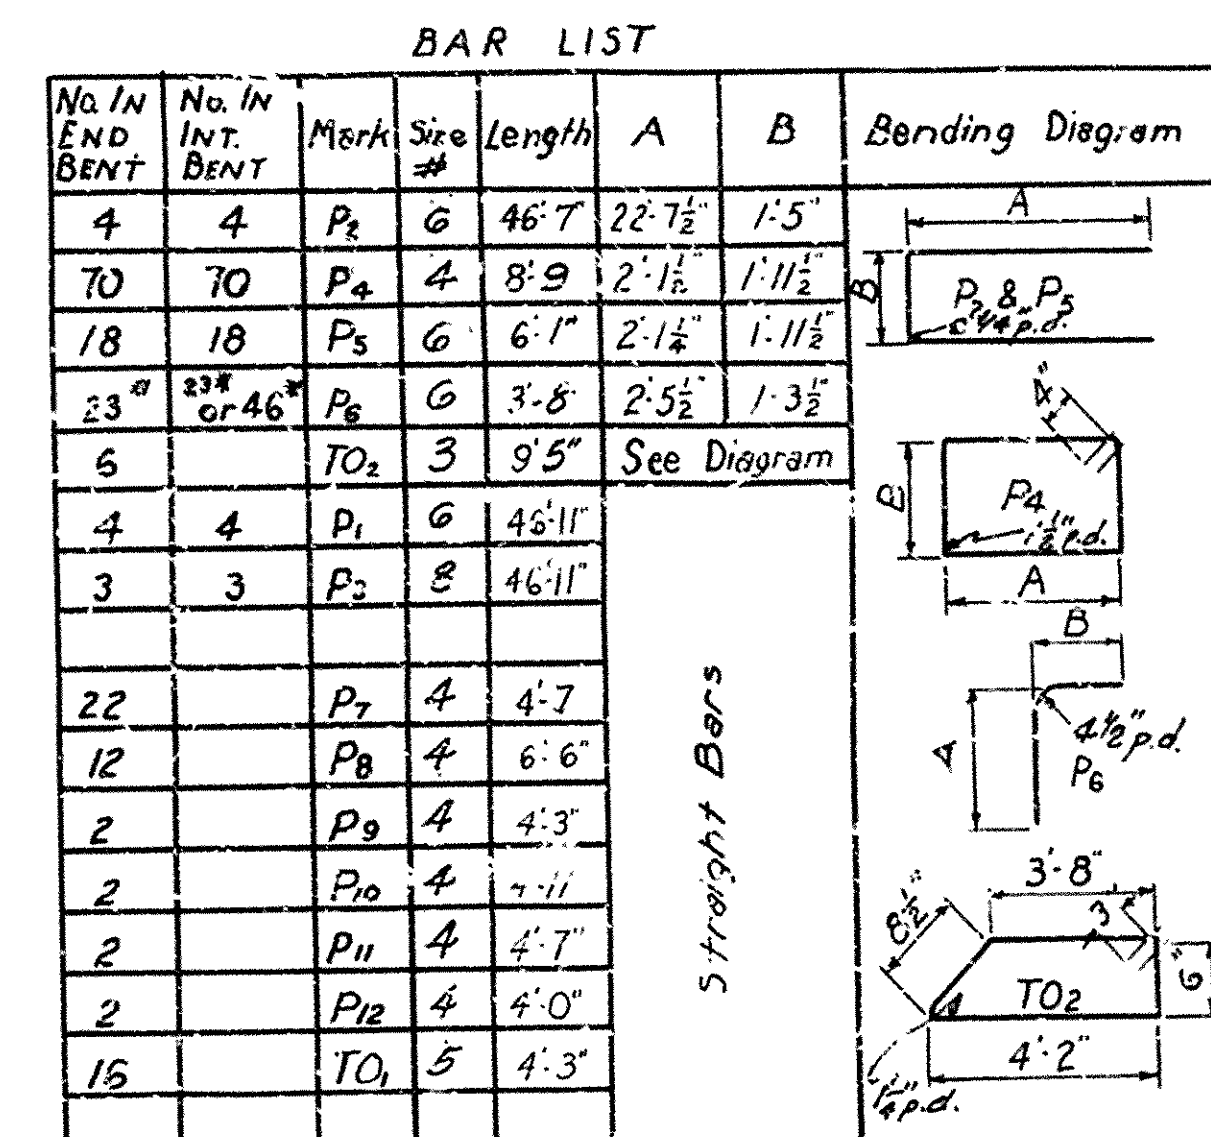 BAR LIST
No. IN END BENT No. IN INT. BENT Mark Size # Length A B Bending Diagram
4 4 P2 6 46'-7" 22'-7½" 1'-5"
70 70 P4 4 8'-9 2'-1½" 1'-11½"
18 18 P5 6 6'-1" 2'-1¼" 1'-11½"
23* 23* or 46* P6 6 3'-8" 2'-5½" 1'-3½"
TO2 3 9'5" See Diagram
4 4 P1 6 46'-11"
3 3 8 46'-11"
22 P7 4 4'-7
12 P8 4 6'-6"
2 P9 4 4'-3"
2 P10 4
2 P11 4 4'-7"
2 P12 4 4'-0"
TO1 5 4'-3"
Straight Bars
A
B
P2 & P5
p.d.
4"
B
P4
1½" p.d.
A
B
A
4½" p.d.
P6
3'-8"
8½"
3"
TO2
6"
4'-2"
1¼" p.d.